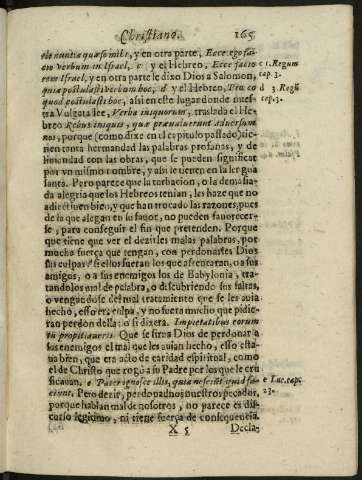 Christiano. 165
rio nuntia quæso mihi, y en otra parte, Ecce ego fa-
cio verbum in Israel, c y el Hebreo, Ecce facio
rem Israel, y en otra parte le dixo Dios a Salomon,
quia postulasti verbum hoc, d y el Hebreo, Pro eo
quod postulasti hoc, asi en este lugar donde nuestra
Vulgata lee, Verba iniquorum, traslada el He-
breo Rebus iniquis, quæ præualuerunt aduersum
nos, porque (como dixe en el capitulo passado) tie-
nen tanta hermandad las palabras profanas, y de
liuiandad con las obras, que se pueden significar
por vn mismo nombre, y asi le tienen en la lengua
santa. Pero parece que la turbacion, o la demasia-
da alegria que los Hebreos tenian, les haze que no
adierten bien, y que han trocado las razones, pues
de la que alegan en su fauor, no pueden fauorecer-
se, para conseguir el fin que pretenden. Porque
que tiene que ver el dezirles malas palabras, por
mucha fuerça que tengan, con perdonarles Dios
sus culpas? si ellos fueran los que afrentaran, o a sus
amigos, o a sus enemigos los de Babylonia, tra-
tandolos mal de palabra, o discubriendo sus faltas,
o vengandose del mal tratamiento que se les auia
hecho, esso era culpa, y no fuera mucho que pidie-
ran perdon della: o si dixera. Impietatibus eorum
tu propitiaueris. Que se sirua Dios de perdonar a
sus enemigos el mal que les auian hecho, esso esta-
ua bien, que era acto de caridad espiritual, como
el de Christo que rogò a su Padre por los que le cru-
cificauan. e Pater ignosce illis, quia nesciunt quid fa-
ciunt. Pero dezir, perdonadnos nuestros pecados,
porque hablan mal de nosotros, no parece es dis-
curso legitimo, ni tiene fuerça de consequencia.
X 5 Decla-
c 1. Regum
cap. 3.
d 3. Regũ
cap. 3.
e Luc. cap.
23.